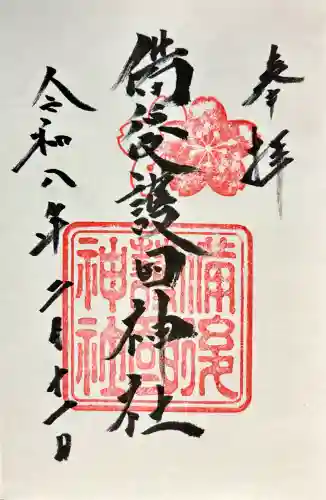 奉拝
備後護国神社
令和八年月十一日
備後
護國
神社